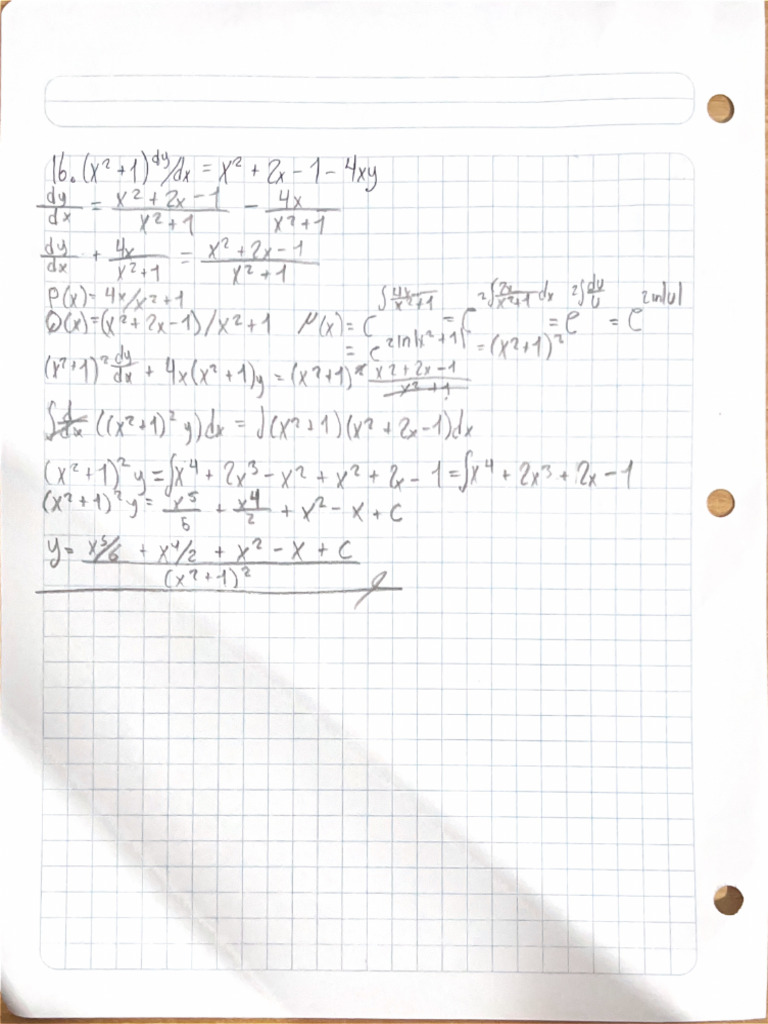 16. (x² + 1) dy/dx = x² + 2x - 1 - 4xy
dy/dx = (x² + 2x - 1)/(x² + 1) - 4x/(x² + 1)
dy/dx + 4x/(x² + 1) = (x² + 2x - 1)/(x² + 1)
P(x) = 4x/x² + 1
Q(x) = (x² + 2x - 1)/x² + 1 μ(x) = e^(∫4x/(x² + 1)) = e^(2∫2x/(x² + 1) dx) = e^(2∫du/u) = e^(2 ln|u|)
= e^(2 ln|x² + 1|) = (x² + 1)²
(x² + 1)² dy/dx + 4x(x² + 1)y = (x² + 1)² (x² + 2x - 1)/(x² + 1)
∫ d/dx ((x² + 1)² y) dx = ∫(x² + 1)(x² + 2x - 1) dx
(x² + 1)² y = ∫x⁴ + 2x³ - x² + x² + 2x - 1 = ∫x⁴ + 2x³ + 2x - 1
(x² + 1)² y = x⁵/5 + x⁴/2 + x² - x + C
y = (x⁵/5 + x⁴/2 + x² - x + C)/(x² + 1)²